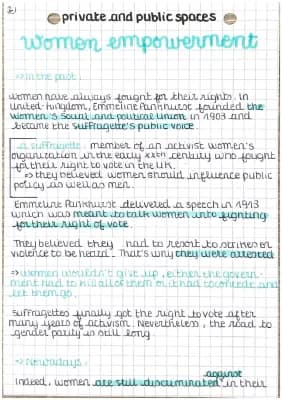 private and public spaces
women empowerment
⇒ In the past:
women have always fought for their rights. In
United-Kingdom, Emmeline Pankhurst founded the
Women's Social and Political Union in 1903 and
became the suffragette's public voice.
a suffragette: member of an activist women's
organization in the early xxth century who fought
for their right to vote in the UK.
⇒ they believed women should influence public
policy as well as men.
Emmeline Pankhurst delivered a speech in 1913
which was meant to talk women into fighting
for their right of vote.
They believed they had to resort to strikes or
violence to be heard. That's why they were arrested
⇒ women wouldn't give up, either the govern-
ment had to kill all of them or it had to concede and
let them go.
Suffragettes finally got the right to vote after
many years of activism. Nevertheless, the road to
gender parity is still long.
⇒ Nowadays:
against
Indeed, women are still discriminated in their